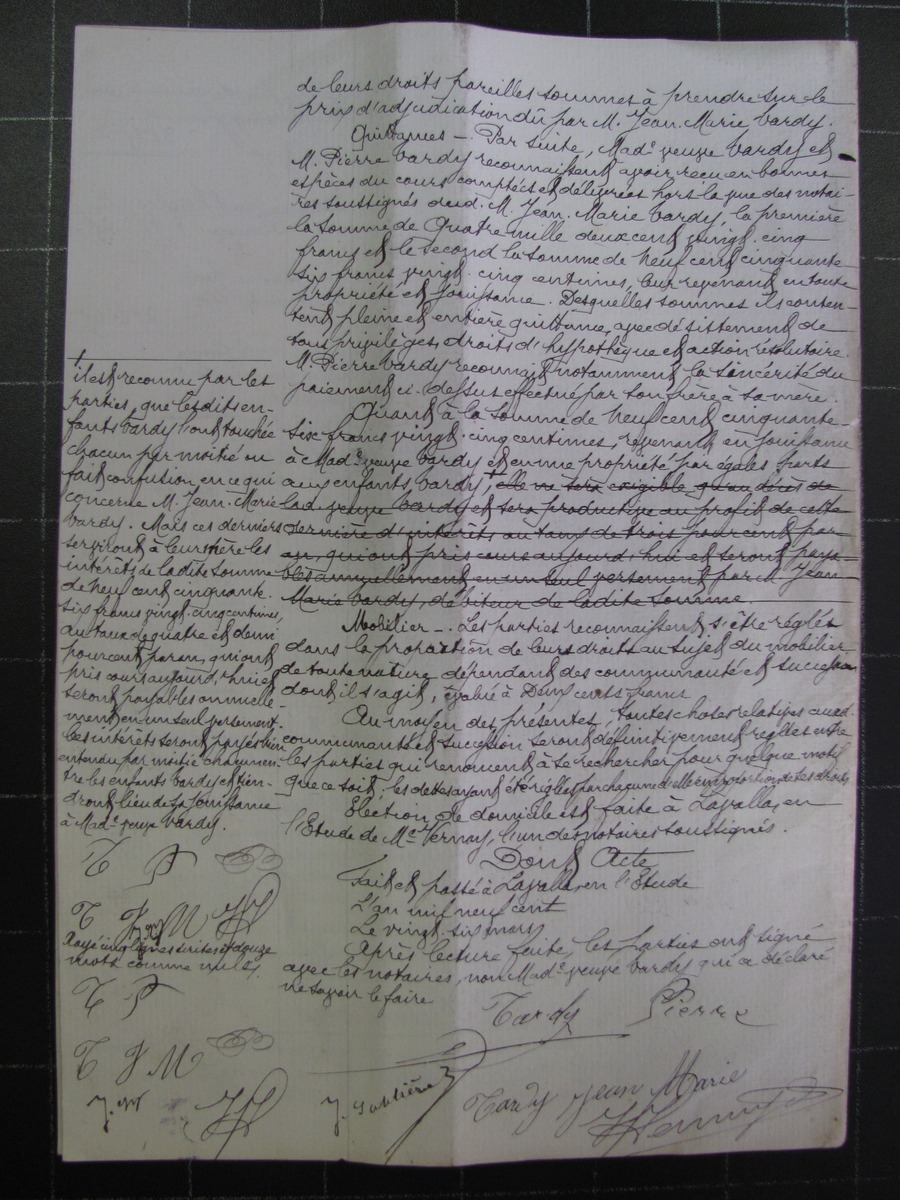 de leurs droits pareilles sommes à prendre sur le
prix d'adjudication dû par M. Jean-Marie Tardy.
Quittances -. Par suite, Made veuve Tardy et
M. Pierre Tardy reconnaissent avoir reçu en bonnes
espèces du cours comptées et délivrées hors la vue des notai-
res soussignés dud. M. Jean-Marie Tardy, la première
la somme de Quatre mille deux cent vingt-cinq
francs et le second la somme de Neuf cent cinquante
six francs vingt-cinq centimes, leur revenant en toute
propriété et jouissance. Desquelles sommes ils consen-
tent pleine et entière quittance, avec désistement de
tous privilèges, droits d'hypothèque et action résolutoire.
M. Pierre Tardy reconnait notamment la sincérité du
paiement ci-dessus effectué par son frère à sa mère.
Quant à la somme de Neuf cent cinquante
six francs vingt-cinq centimes, revenant en jouissance
à Made veuve Tardy et en nue propriété par égales parts
aux enfants Tardy, elle ne sera exigible qu'au décès de
lad. veuve Tardy et sera productive au profit de cette
dernière d'intérêts au taux de trois pour cent par
an, qui ont pris cours aujourd'hui et seront paya-
bles annuellement en un seul versement par M. Jean
Marie Tardy, débiteur de ladite somme.
Mobilier -. Les parties reconnaissent s'être réglés
dans la proportion de leurs droits au sujet du mobilier
de toute nature dépendant des communauté et succession
dont il s'agit, évalué à Deux cents francs
Au moyen des présentes, toutes choses relatives auxd.
communauté et succession seront définitivement réglées entre
les parties qui renoncent à se rechercher pour quelque motif
que ce soit. les dettes ayant été réglées par chacune d'elles en proportion de ses droits
Election de domicile est faite à Lavalla, en
l'Etude de Me Vernay, l'un des notaires soussignés.
Dont Acte
Fait et passé à Lavalla, en l'Etude
L'an mil neuf cent
Le vingt-six mars
Après lecture faite, les parties ont signé
avec les notaires, non Made veuve Tardy qui a déclaré
ne savoir le faire
Tardy Pierre
Tardy Jean Marie
il est reconnu par les
parties, que lesdits en-
fants Tardy l'ont touchée
chacun par moitié ou
fait confusion en ce qui
concerne M. Jean-Marie
Tardy. Mais ces derniers
serviront à leur mère les
intérêts de ladite somme
de neuf cent cinquante-
six francs vingt-cinq centimes,
au taux de quatre et demi
pour cent par an, qui ont
pris cours aujourd'hui et
seront payables annuelle-
ment en un seul versement.
Les intérêts seront payés bien
entendu par moitié chacun en-
tre les enfants Tardy et tien-
dront lieu de la jouissance
à Made veuve Tardy.
T P
T J M
Rayé cinq lignes entières et douze
mots comme nuls,
T P
T J M